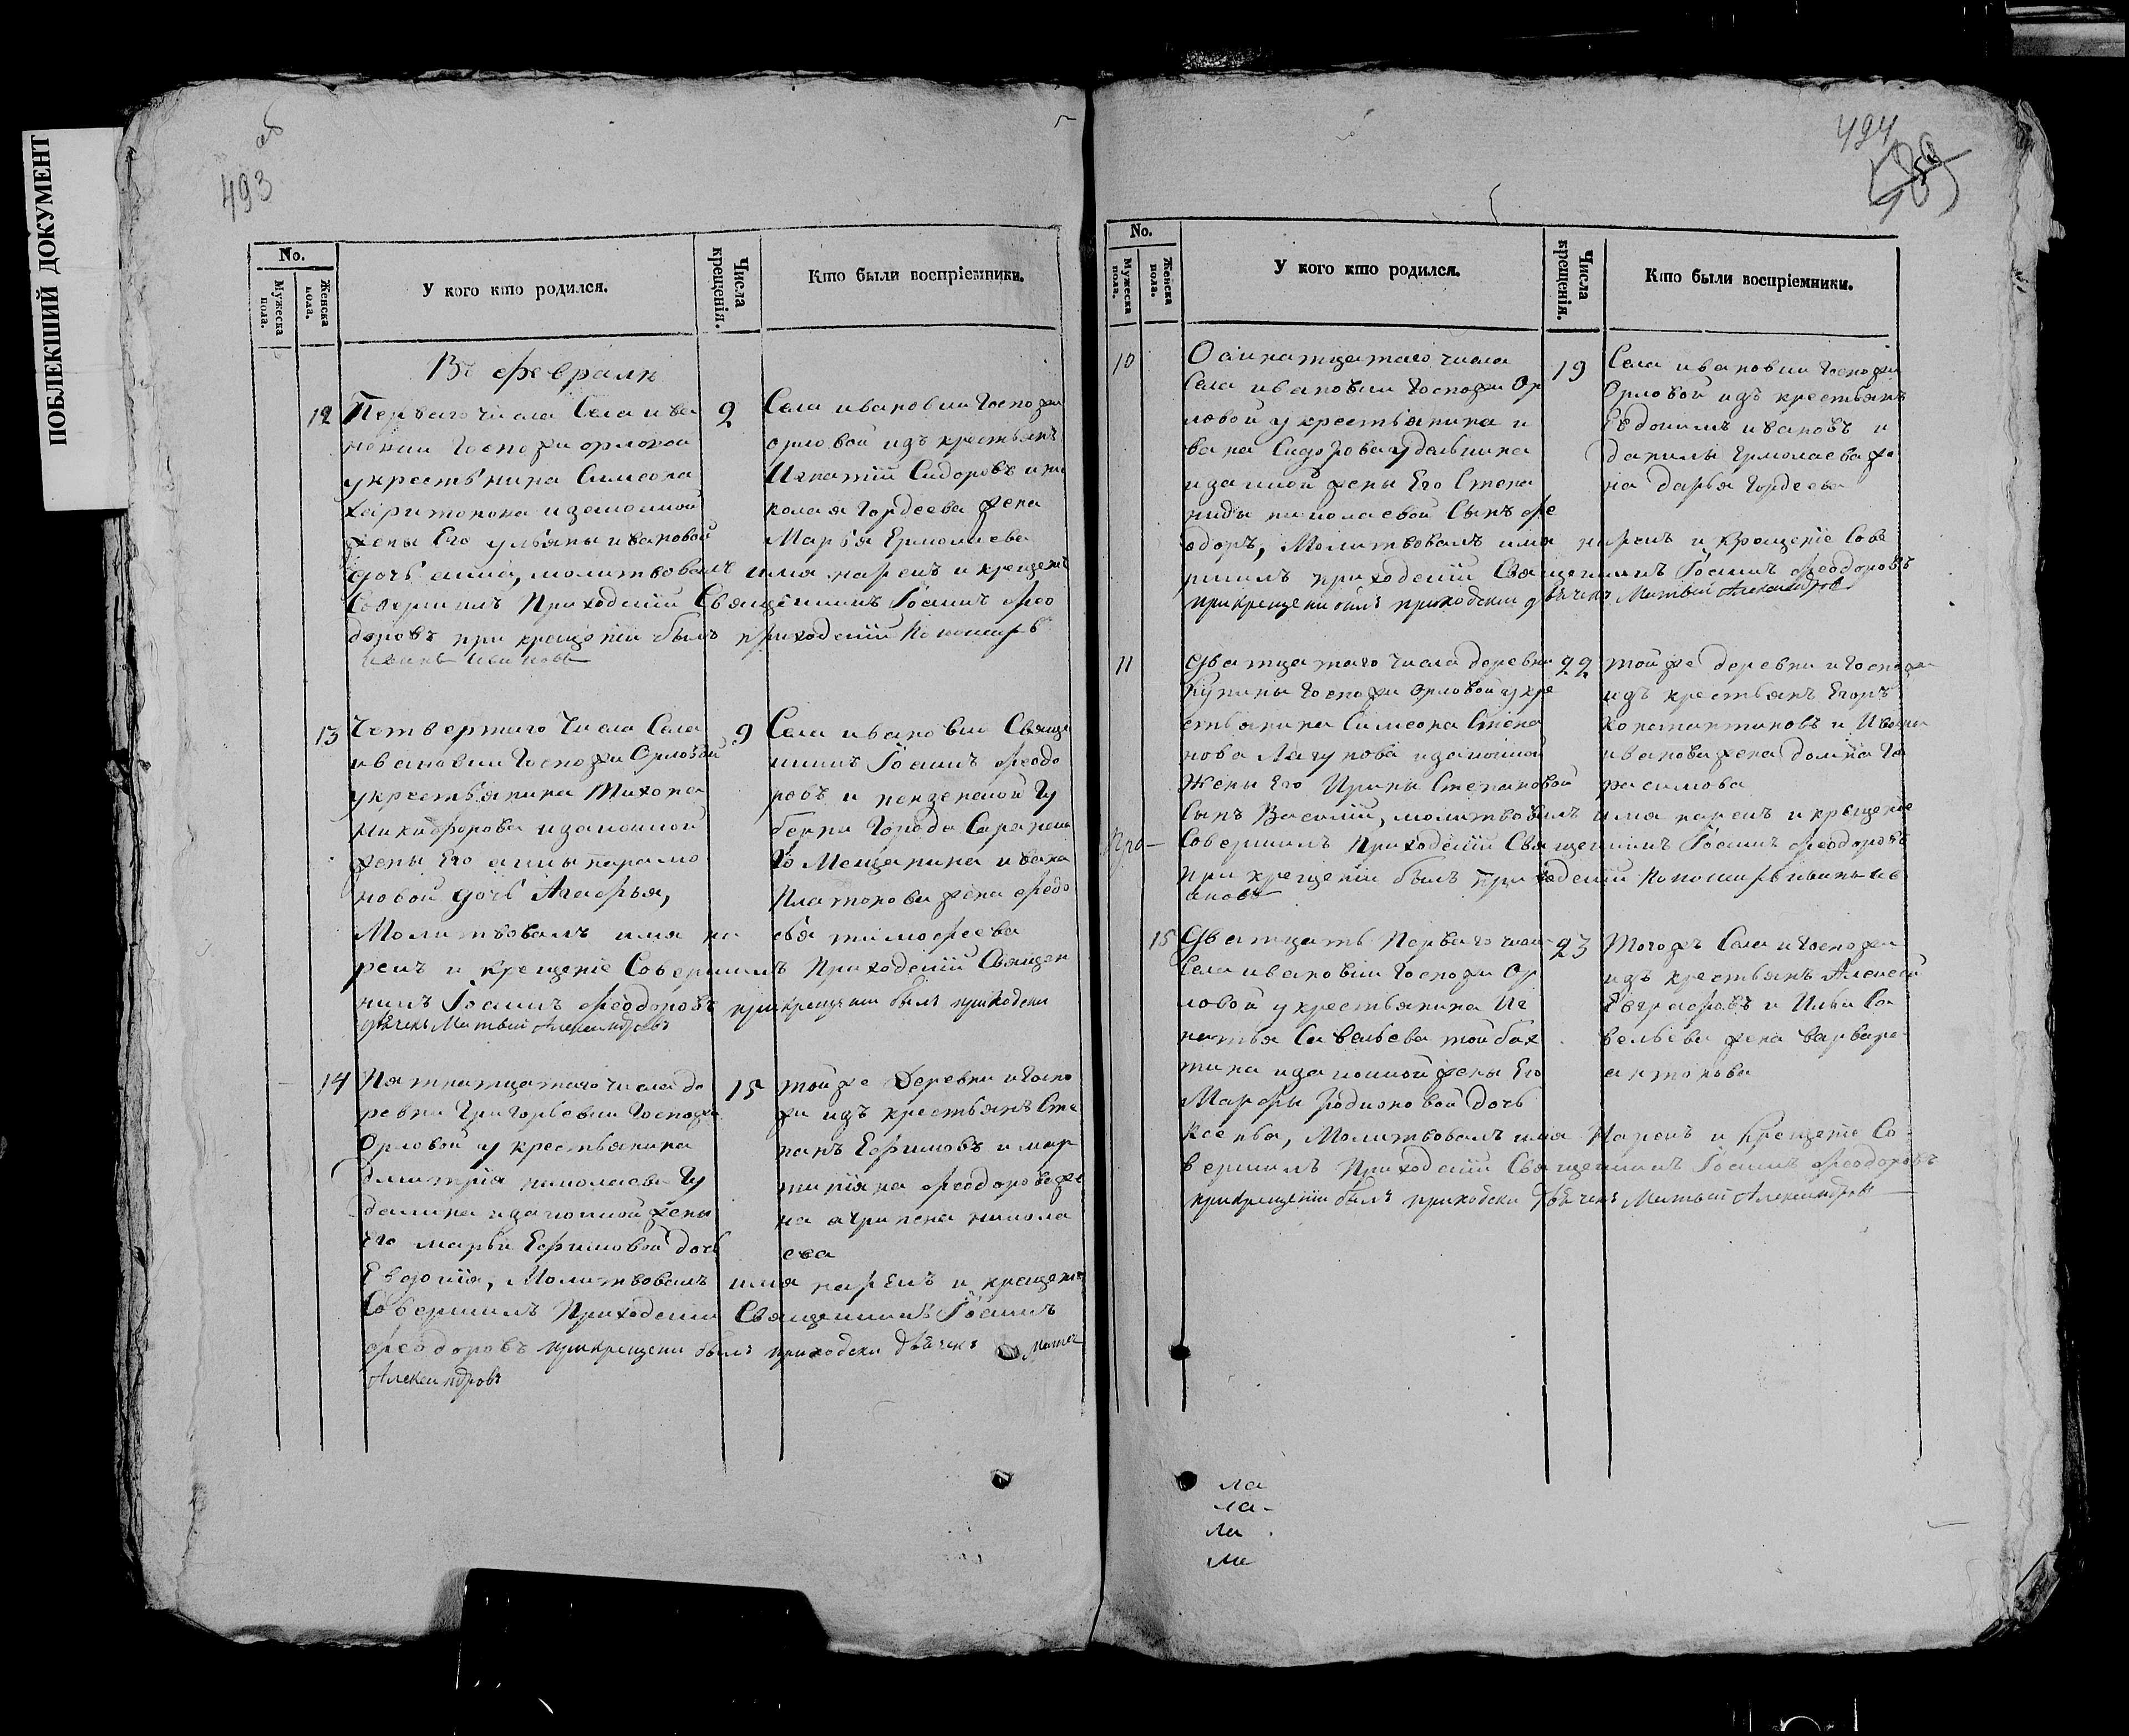 ПОБЛЕКШИЙ ДОКУМЕНТ
об
493
No.
Мужеска пола.
Женска пола.
У кого кто родился.
Числа крещенія.
Кто были воспріемники.
Въ февралѣ
12
Перваго числа Села ива
новки Госпожи орловой
укрестьнина Симеона
харитонова изаконной
жены Его ульяны ивановой
дочь анна, молитвовалъ имя нарекъ и крещение
Совершилъ Приходскій Священникъ Іоаннъ фео
доровъ при крещеніи былъ приходскій Пономарь
2
Села ивановки Госпожи
орловой изъ крестьянъ
Игнатій Сидоровъ и ни
колая Гордеева жена
Марья Ермолаева
13
Четвертаго Числа Села
ивановки Госпожи Орловой
укрестьянина Тихона
Никифорова изаконной
жены Его анны парамо
новой дочь Агафья,
Молитвовалъ имя на
рекъ и крещение Совершилъ Приходскій Священ
никъ Іоаннъ феодоровъ прикрещении былъ приходски
дьячекъ Матвей Александровъ
9
Села ивановки Священ
никъ Іоаннъ феодо
ровъ и пензенской Гу
берни Города Саранска
го Мещанина ивана
Платонова жена федо
сья тимофеева
14
Пятнатцатаго числа де
ревни Григорьевки Госпожи
Орловой у крестьянина
дмитрія николаева Гу
далина изаконной жены
Его марьи Ефимовой дочь
Евдокія, Молитвовалъ имя нарекъ и крещение
Совершилъ Приходский Священникъ Іоаннъ
феодоровъ прикрещени былъ приходски дьячекъ
Александровъ
15
той же Деревни и Госпо
жи изъ крестьянъ Сте
панъ Ефимовъ и мар
тиніяна феодорова же
на агрипена никола
ева
494
No.
Мужеска пола.
Женска пола.
У кого кто родился.
Числа крещенія.
Кто были воспріемники.
10
Осмнатцатаго числа
Села ивановки Госпожи Ор
ловой у крестьянина и
вана Сидорова
изаконой жены Его Степа
ниды николаевой Сынъ фе
одоръ, Молитвовалъ имя нарекъ и крещеніе Сове
ршилъ приходскій Священникъ Іоаннъ феодоровъ
прикрещени былъ приходски дьячекъ Матвей Александровъ
19
Села ивановки Госпожи
Орловой изъ крестьянъ
Евдокимъ ивановъ и
данилы Ермолаева же
на дарья Гордеева
11
Дватцатаго Числа деревни
Купины Госпожи Орловой укре
стьянина Симеона Степа
нова Лагунова изаконной
Жены Его Ирины Степановой
Сынъ Василий, молитвовалъ имя нарекъ и крещение
Совершилъ Приходскій Священникъ Іоаннъ феодоровъ
При крещеніи былъ приходский Пономарь иванъ ив
ановъ
22
той же деревни и Госпожи
изъ крестьянъ Егоръ
Константиновъ и Ивана
иванова жена домна Ге
расимова
15
Дватцать Перваго числа
Села ивановки Госпожи Ор
ловой укрестьянина Иг
натья Савельева
изаконной жены Его
Марфы Родионовой дочь
Ксенья, Молитвовалъ имя Нарекъ и Крещеніе Со
вершилъ Приходский Священникъ Іоаннъ феодоровъ
прикрещении былъ приходски дьячекъ Матвей Александровъ
23
Тогожъ Села и Госпожи
изъ крестьянъ Алексей
Евграфовъ и Ильи Са
вельева жена варвара
антонова
ла
ла
ла
ла